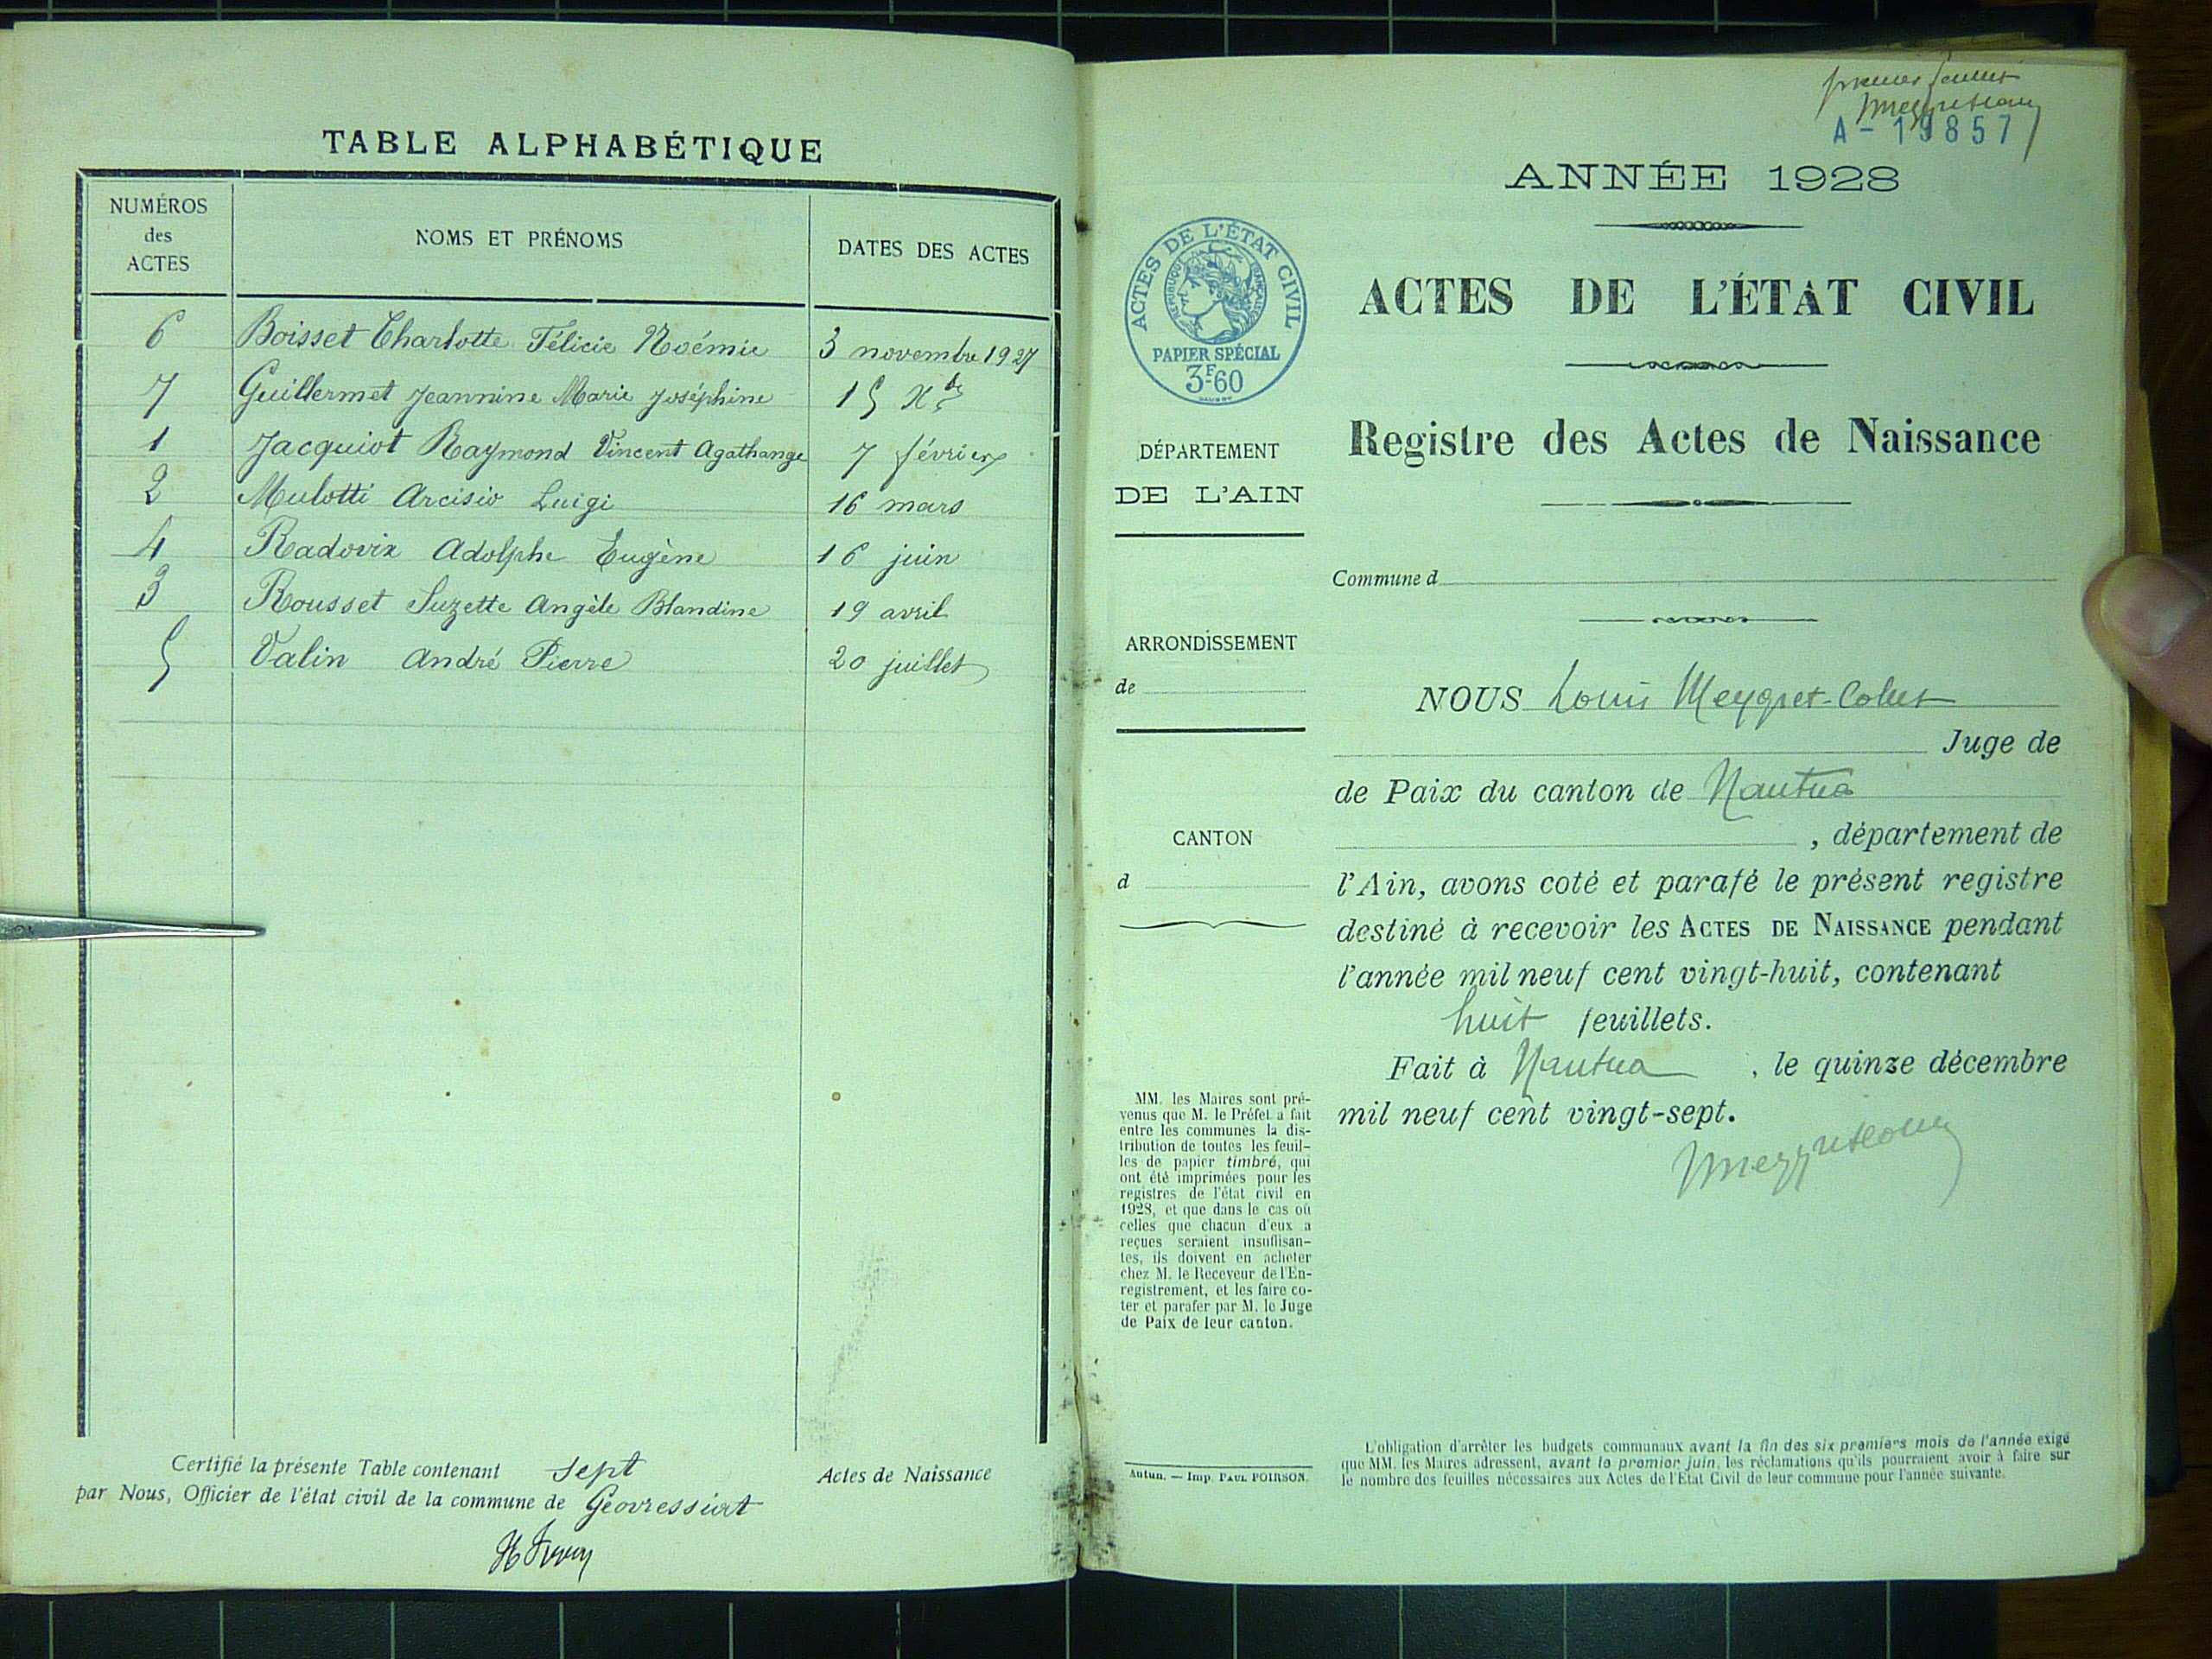 TABLE ALPHABÉTIQUE
NUMÉROS
des
ACTES
NOMS ET PRÉNOMS
DATES DES ACTES
6 Boisset Charlotte Félicie Noémie 3 novembre 1927
7 Guillermet Jeannine Marie Joséphine 15 Xbre
1 Jacquiot Raymond Vincent Agathange 7 février
2 Mulotti Arcisio Luigi 16 mars
4 Radovix Adolphe Eugène 16 juin
3 Rousset Suzette Angèle Blandine 19 avril
5 Valin André Pierre 20 juillet
Certifié la présente Table contenant sept Actes de Naissance
par Nous, Officier de l'état civil de la commune de Géovressiat
premier feuillet
A - 19857
ANNÉE 1928
ACTES DE L'ÉTAT CIVIL
RÉPUBLIQUE FRANÇAISE
PAPIER SPÉCIAL
3F60
ACTES DE L'ÉTAT CIVIL
Registre des Actes de Naissance
DÉPARTEMENT
DE L'AIN
ARRONDISSEMENT
de
CANTON
d
MM. les Maires sont pré-
venus que M. le Préfet a fait
entre les communes la dis-
tribution de toutes les feuil-
les de papier timbré, qui
ont été imprimées pour les
registres de l'état civil en
1928, et que dans le cas où
celles que chacun d'eux a
reçues seraient insuffisan-
tes, ils doivent en acheter
chez M. le Receveur de l'En-
registrement, et les faire co-
ter et parafer par M. le Juge
de Paix de leur canton.
Autun. — Imp. PAUL POIRSON.
Commune d
NOUS Louis Meygret-Collet
Juge de
de Paix du canton de Nantua
, département de
l'Ain, avons coté et parafé le présent registre
destiné à recevoir les ACTES DE NAISSANCE pendant
l'année mil neuf cent vingt-huit, contenant
huit feuillets.
Fait à Nantua , le quinze décembre
mil neuf cent vingt-sept.
L'obligation d'arrêter les budgets communaux avant la fin des six premiers mois de l'année exige
que MM. les Maires adressent, avant le premier juin, les réclamations qu'ils pourraient avoir à faire sur
le nombre des feuilles nécessaires aux Actes de l'Etat Civil de leur commune pour l'année suivante.